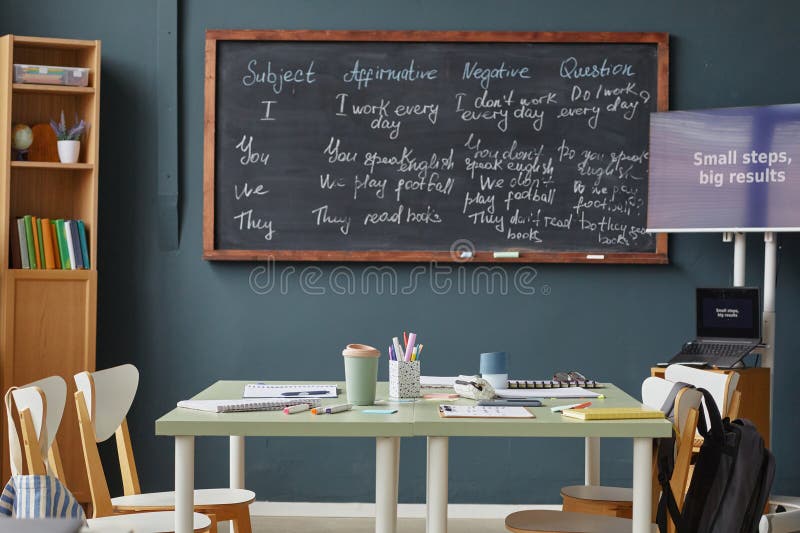 Subject Affirmative Negative Question
I I work every day I don't work every day Do I work every day?
You You speak english You don't speak english Do you speak english
We We play football We don't play football Do we play football?
They They read books They don't read books Do they read books
Small steps,
big results
Small steps,
big results
dreamstime